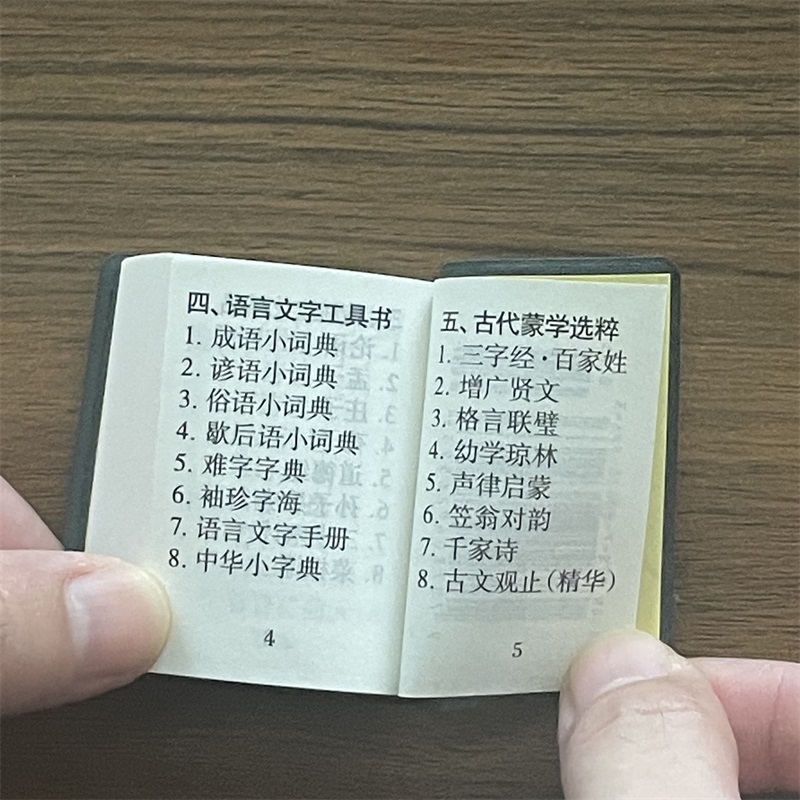 四、语言文字工具书
1. 成语小词典
2. 谚语小词典
3. 俗语小词典
4. 歇后语小词典
5. 难字字典
6. 袖珍字海
7. 语言文字手册
8. 中华小字典
4
五、古代蒙学选粹
1. 三字经·百家姓
2. 增广贤文
3. 格言联璧
4. 幼学琼林
5. 声律启蒙
6. 笠翁对韵
7. 千家诗
8. 古文观止(精华)
5